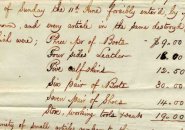 of Sunday the 11th Inst forcibly entered by
and every article in the same destroyed
which were; Three pr of Boots $9.00
Four sides Leather 16.00
Five calf skins 12.50
Six pair of Boots 30.00
Seven pair of Shoes 14.00
Box, working tools & seats 19.00
of small articles